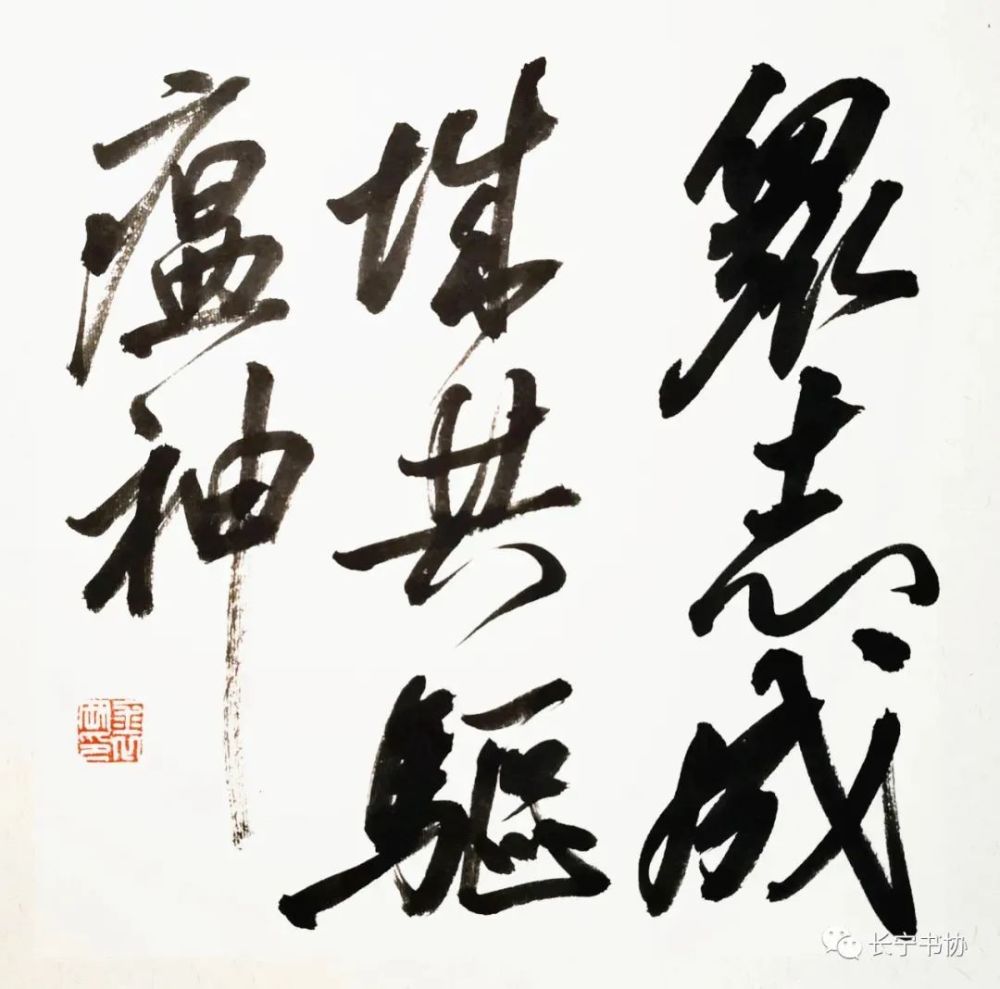 眾志成
城共驅
瘟神
长宁书协